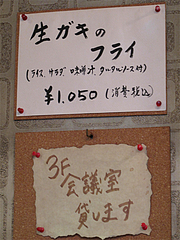 生ガキの
フライ
(ライス、サラダ、味噌汁、タルタルソース付)
¥1.050(消費税込)
3F
会議室
貸します